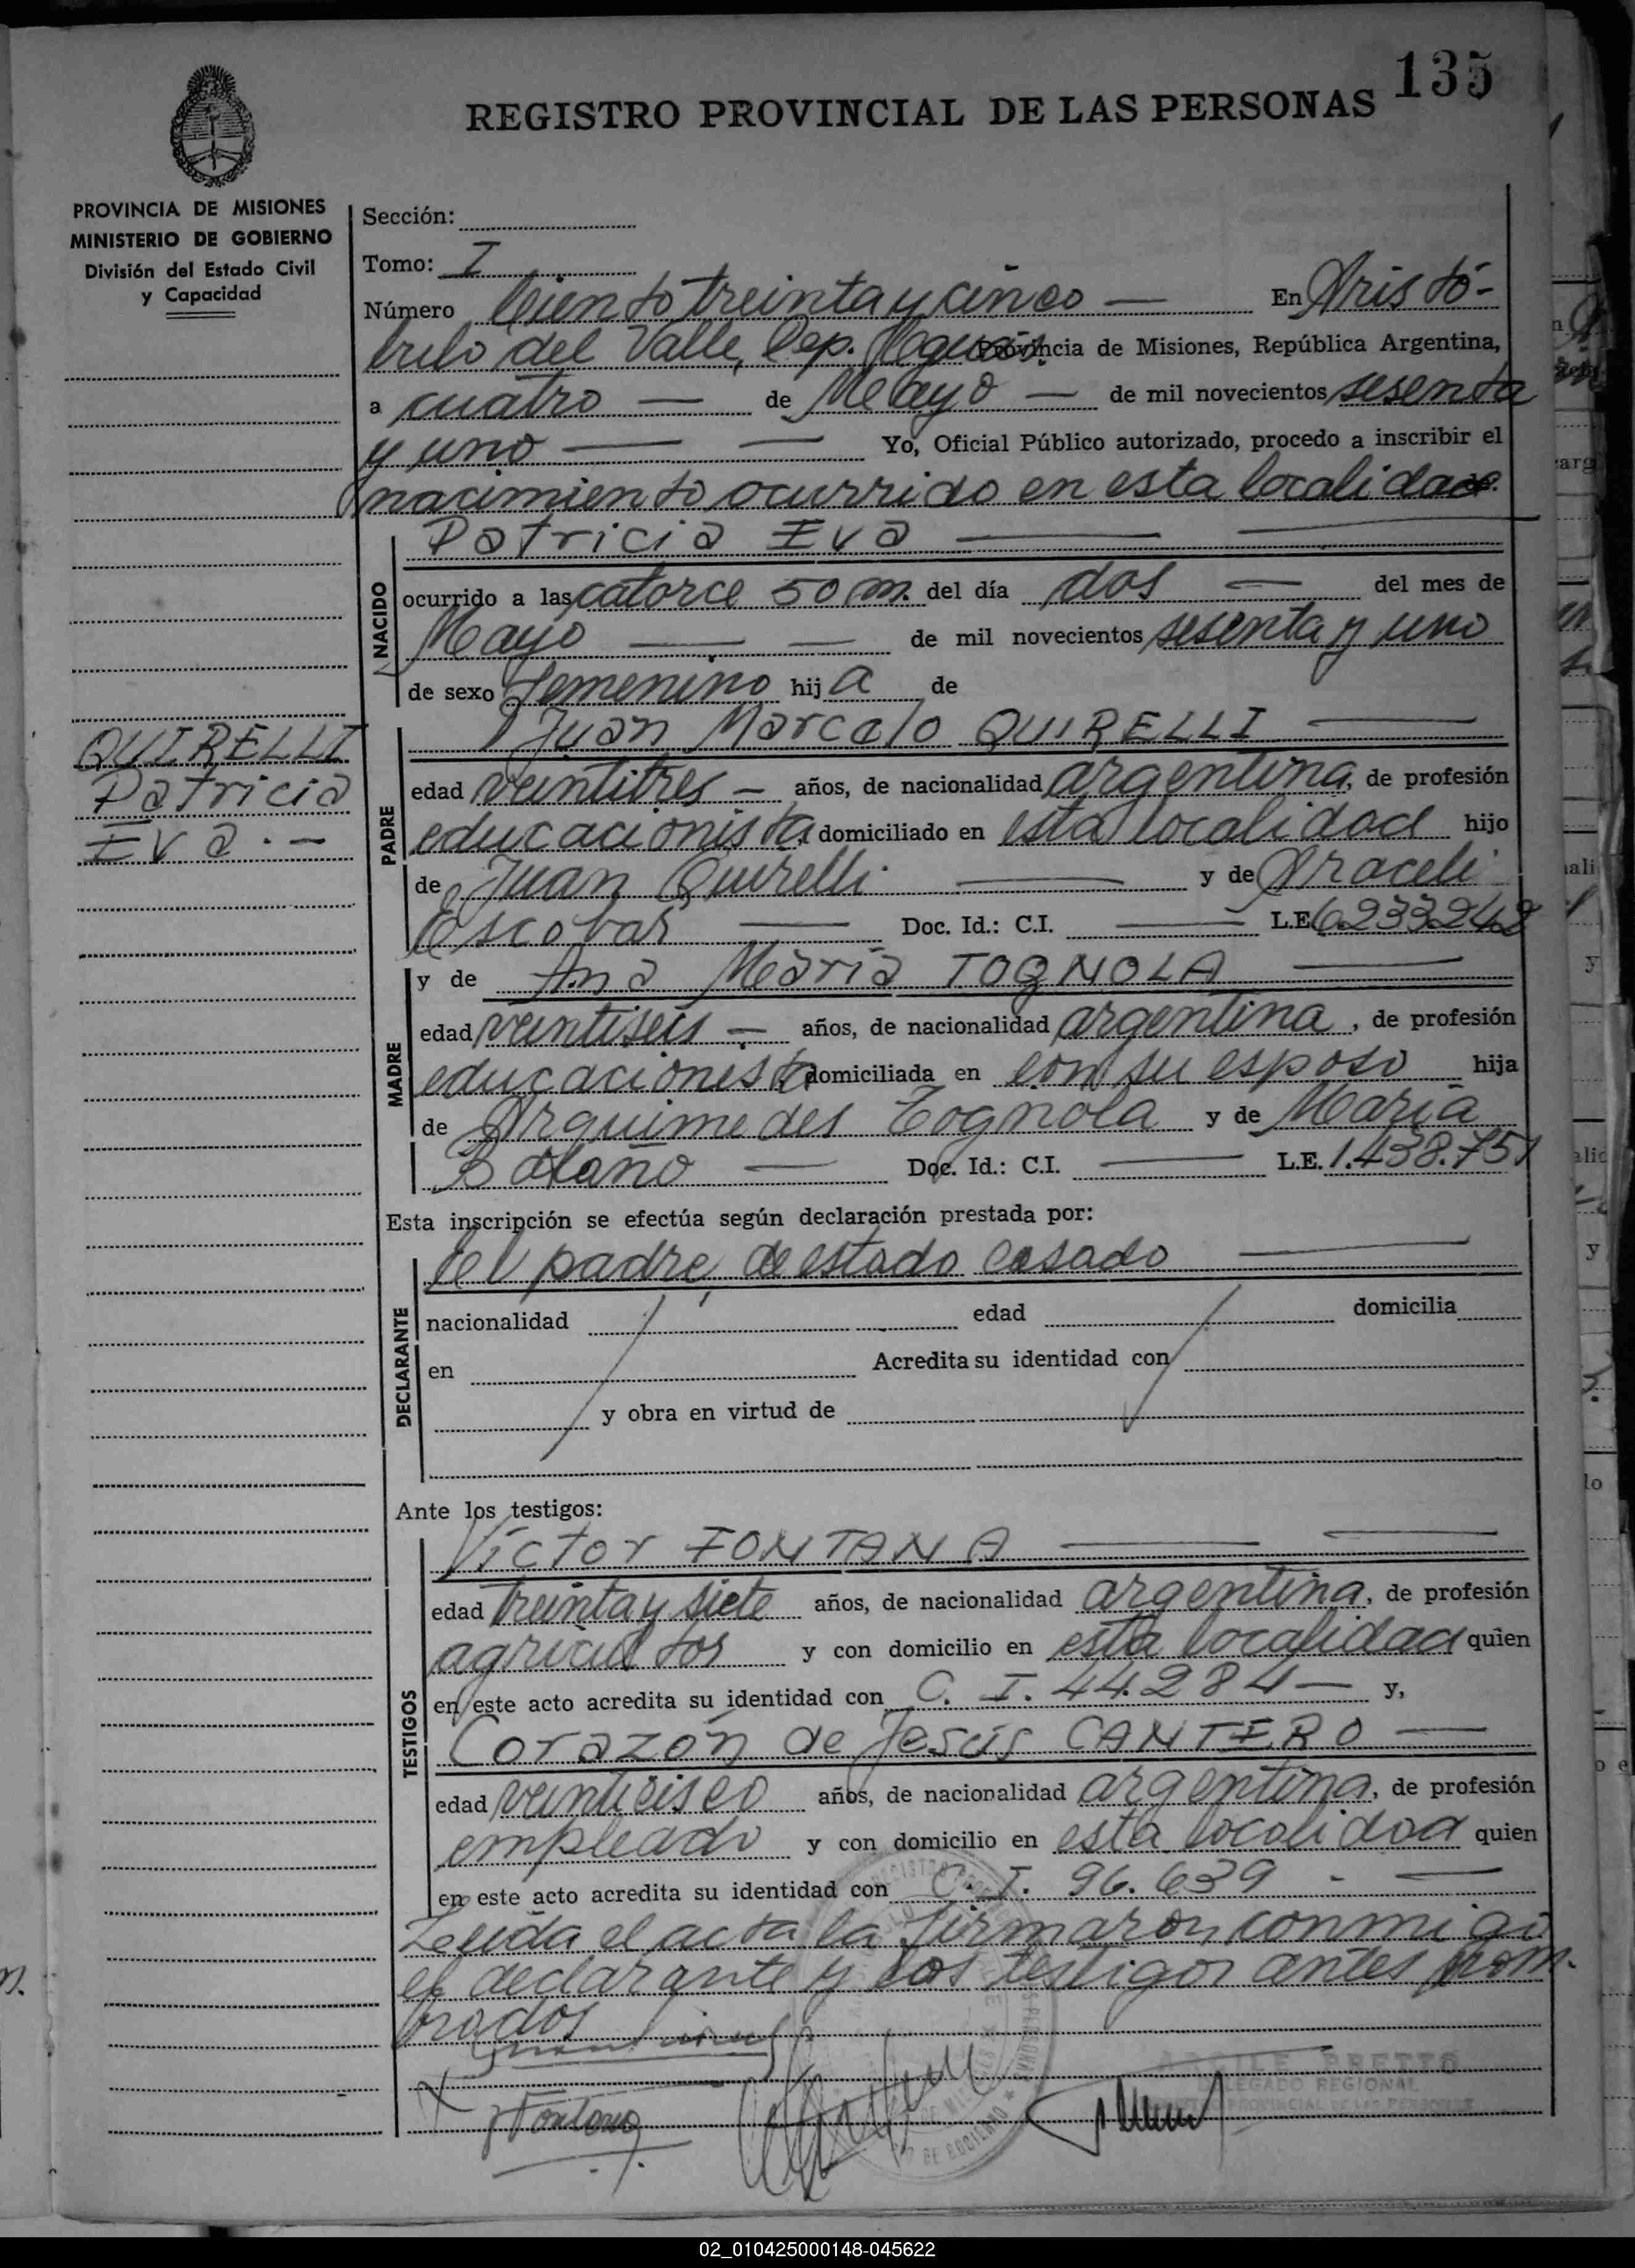 135
REGISTRO PROVINCIAL DE LAS PERSONAS
PROVINCIA DE MISIONES
MINISTERIO DE GOBIERNO
División del Estado Civil
y Capacidad
Sección:
Tomo: I
Número Ciento treinta y cinco — En Aristó-
bulo del Valle, Dep. Provincia de Misiones, República Argentina,
a cuatro — de Mayo — de mil novecientos sesenta
y uno — — Yo, Oficial Público autorizado, procedo a inscribir el
nacimiento ocurrido en esta localidad
NACIDO
Patricia Eva — —
ocurrido a las catorce 50 m. del día dos — del mes de
Mayo — — de mil novecientos sesenta y uno
de sexo femenino hija de
QUIRELLI
Patricia
Eva.-
PADRE
Juan Marcelo QUIRELLI —
edad veintitres — años, de nacionalidad argentina, de profesión
educacionista domiciliado en esta localidad hijo
de Juan Quirelli — y de Araceli
Escobar — Doc. Id.: C.I. — L.E. 6.233.242
MADRE
y de Ana María TOGNOLA —
edad veintiseis — años, de nacionalidad argentina, de profesión
educacionista domiciliada en con su esposo hija
de Arquimedes Tognola y de María
— Doc. Id.: C.I. — L.E. 1.438.751
Esta inscripción se efectúa según declaración prestada por:
DECLARANTE
el padre, de estado casado —
nacionalidad edad domicilia
en Acredita su identidad con
y obra en virtud de
Ante los testigos:
TESTIGOS
Víctor FONTANA — —
edad treinta y siete años, de nacionalidad argentina, de profesión
agricultor y con domicilio en esta localidad quien
en este acto acredita su identidad con C. I. 44.284 — y,
Corazón de Jesús CANTERO —
edad veinticisco años, de nacionalidad argentina, de profesión
empleado y con domicilio en esta localidad quien
en este acto acredita su identidad con C. I. 96.639 - —
Leida el acta la firmaron conmigo
el declarante y los testigos antes nom-
brados
PRETTO
DELEGADO REGIONAL
PROVINCIAL DE LAS PERSONAS
Fontana
02_010425000148-045622